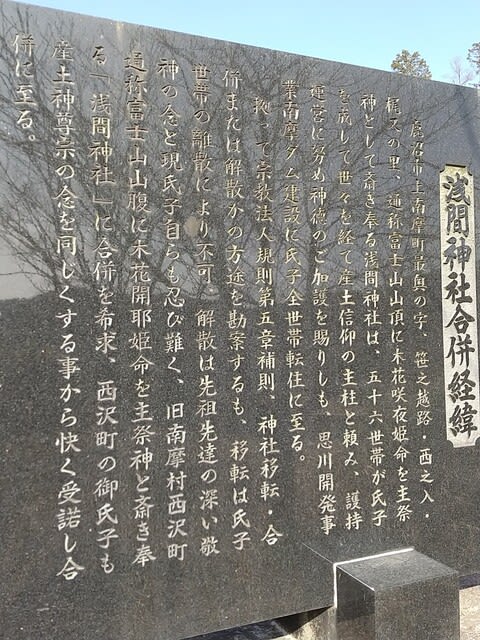 浅間神社合併経緯
鹿沼市上南摩町最奥の字、笹之越路・西之入・
梶又の里、通称富士山山頂に木花咲夜姫命を主祭
神として斎き奉る浅間神社は、五十六世帯が氏子
を成して世々を経て産土信仰の主柱と頼み、護持
運営に努め神徳のご加護を賜りしも、思川開発事
業南摩ダム建設に氏子全世帯転住に至る。
拠って宗教法人規則第五章補則、神社移転・合
併または解散かの方途を勘案するも、移転は氏子
世帯の離散により不可。解散は先祖先達の深い敬
神の念と現氏子自らも忍び難く、旧南摩村西沢町
通称富士山山腹に木花開耶姫命を主祭神と斎き奉
る「浅間神社」に合併を希求、西沢町の御氏子も
産土神尊宗の念を同じくする事から快く受諾し合
併に至る。